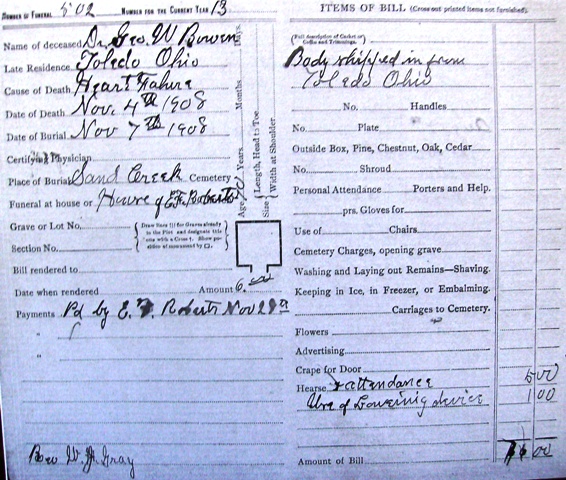 NUMBER OF FUNERAL 502 NUMBER FOR THE CURRENT YEAR 13
Name of deceased Dr. Geo. W Bowen
Late Residence Toledo Ohio
Cause of Death Heart Failure
Date of Death Nov. 4th 1908
Date of Burial Nov 7th 1908
Certifying Physician
Place of Burial Sand Creek Cemetery
Funeral at house or House of E.F. Roberts
Age Years Months Days.
Size { Length, Head to Toe
Width at Shoulder
Grave or Lot No.
Section No.
Draw lines for Graves already in the Plot and designate this one with a Cross †. Show position of monument by □.
Bill rendered to
Date when rendered Amount 6.00
Payments Pd by E. F. Roberts Nov 28th
"
"
Rev W. Gray
ITEMS OF BILL (Cross out printed items not furnished).
(Full description of Casket or Coffin and Trimmings.
Body shipped in from
Toledo Ohio
No. Handles
No. Plate
Outside Box, Pine, Chestnut, Oak, Cedar
No. Shroud
Personal Attendance Porters and Help.
prs. Gloves for
Use of Chairs
Cemetery Charges, opening grave
Washing and Laying out Remains—Shaving.
Keeping in Ice, in Freezer, or Embalming.
Carriages to Cemetery.
Flowers
Advertising
Crape for Door
Hearse & attendance 5 00
Use of Lowering device 1 00
Amount of Bill 6 00